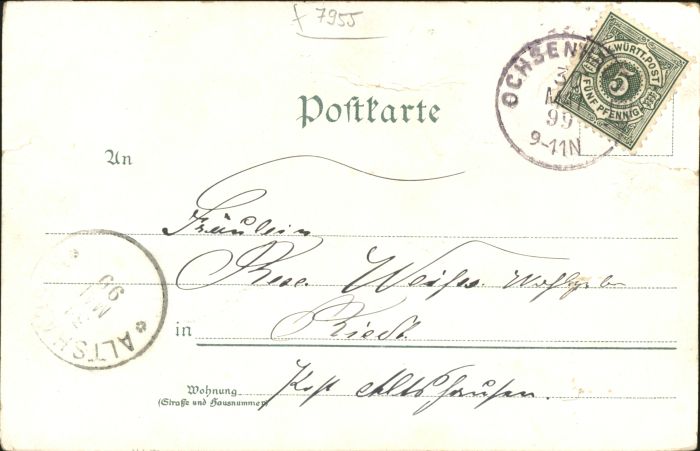 7955
OCHSEN
3
M
99
9-11N
K. WÜRTT. POST
5
FÜNF PFENNIG
Postkarte
An
Fräulein
Weiss. Wohlgeb
in Riedt.
Wohnung
(Straße und Hausnummer)
Post Altshausen.
ALTSH
MAI
99